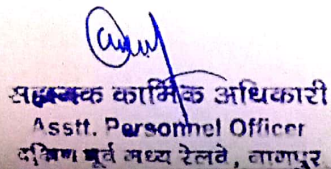 सहायक कार्मिक अधिकारी
Asstt. Personnel Officer
दक्षिण पूर्व मध्य रेलवे, नागपुर